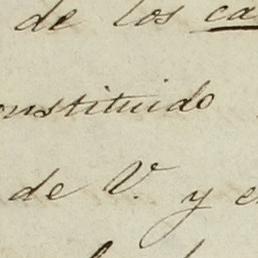 de los ca
onstituido
de V. y e